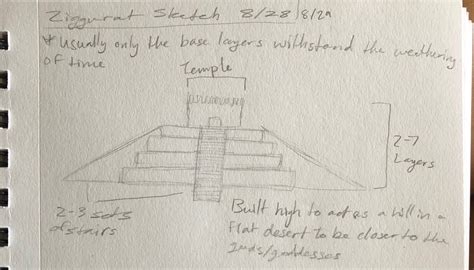 Ziggurat Sketch 8/28 8/29
* Usually only the base layers withstand the weathering
of time
Temple
2-7
Layers
2-3 sets
of stairs
Built high to act as a hill in a
flat desert to be closer to the
gods/goddesses